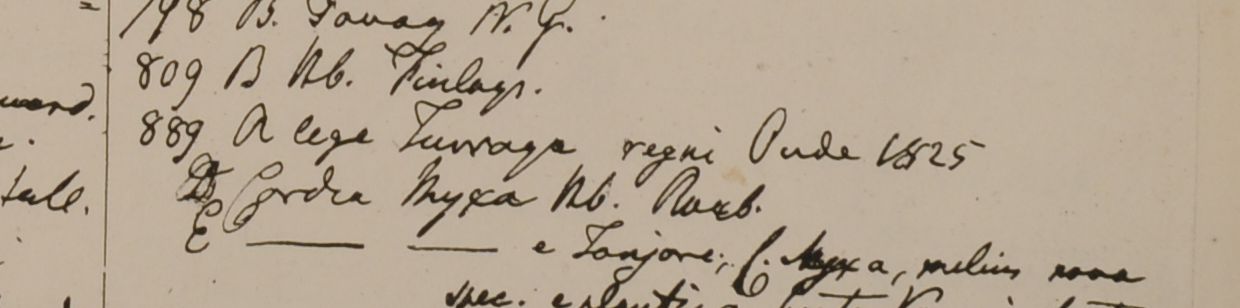 798 B. Tavoy N. G.
809 B Hb. Finlays.
889 A lege Turraye regni Oude 1825
D Cordia Myxa Hb. Roxb.
E ——— ——— e Tanjore; C. Myxa, melius nova
spec. e